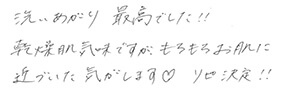 洗いあがり 最高でした!!
乾燥肌気味ですが、もちもちお肌に
近づいた気がします♡ リピ決定!!